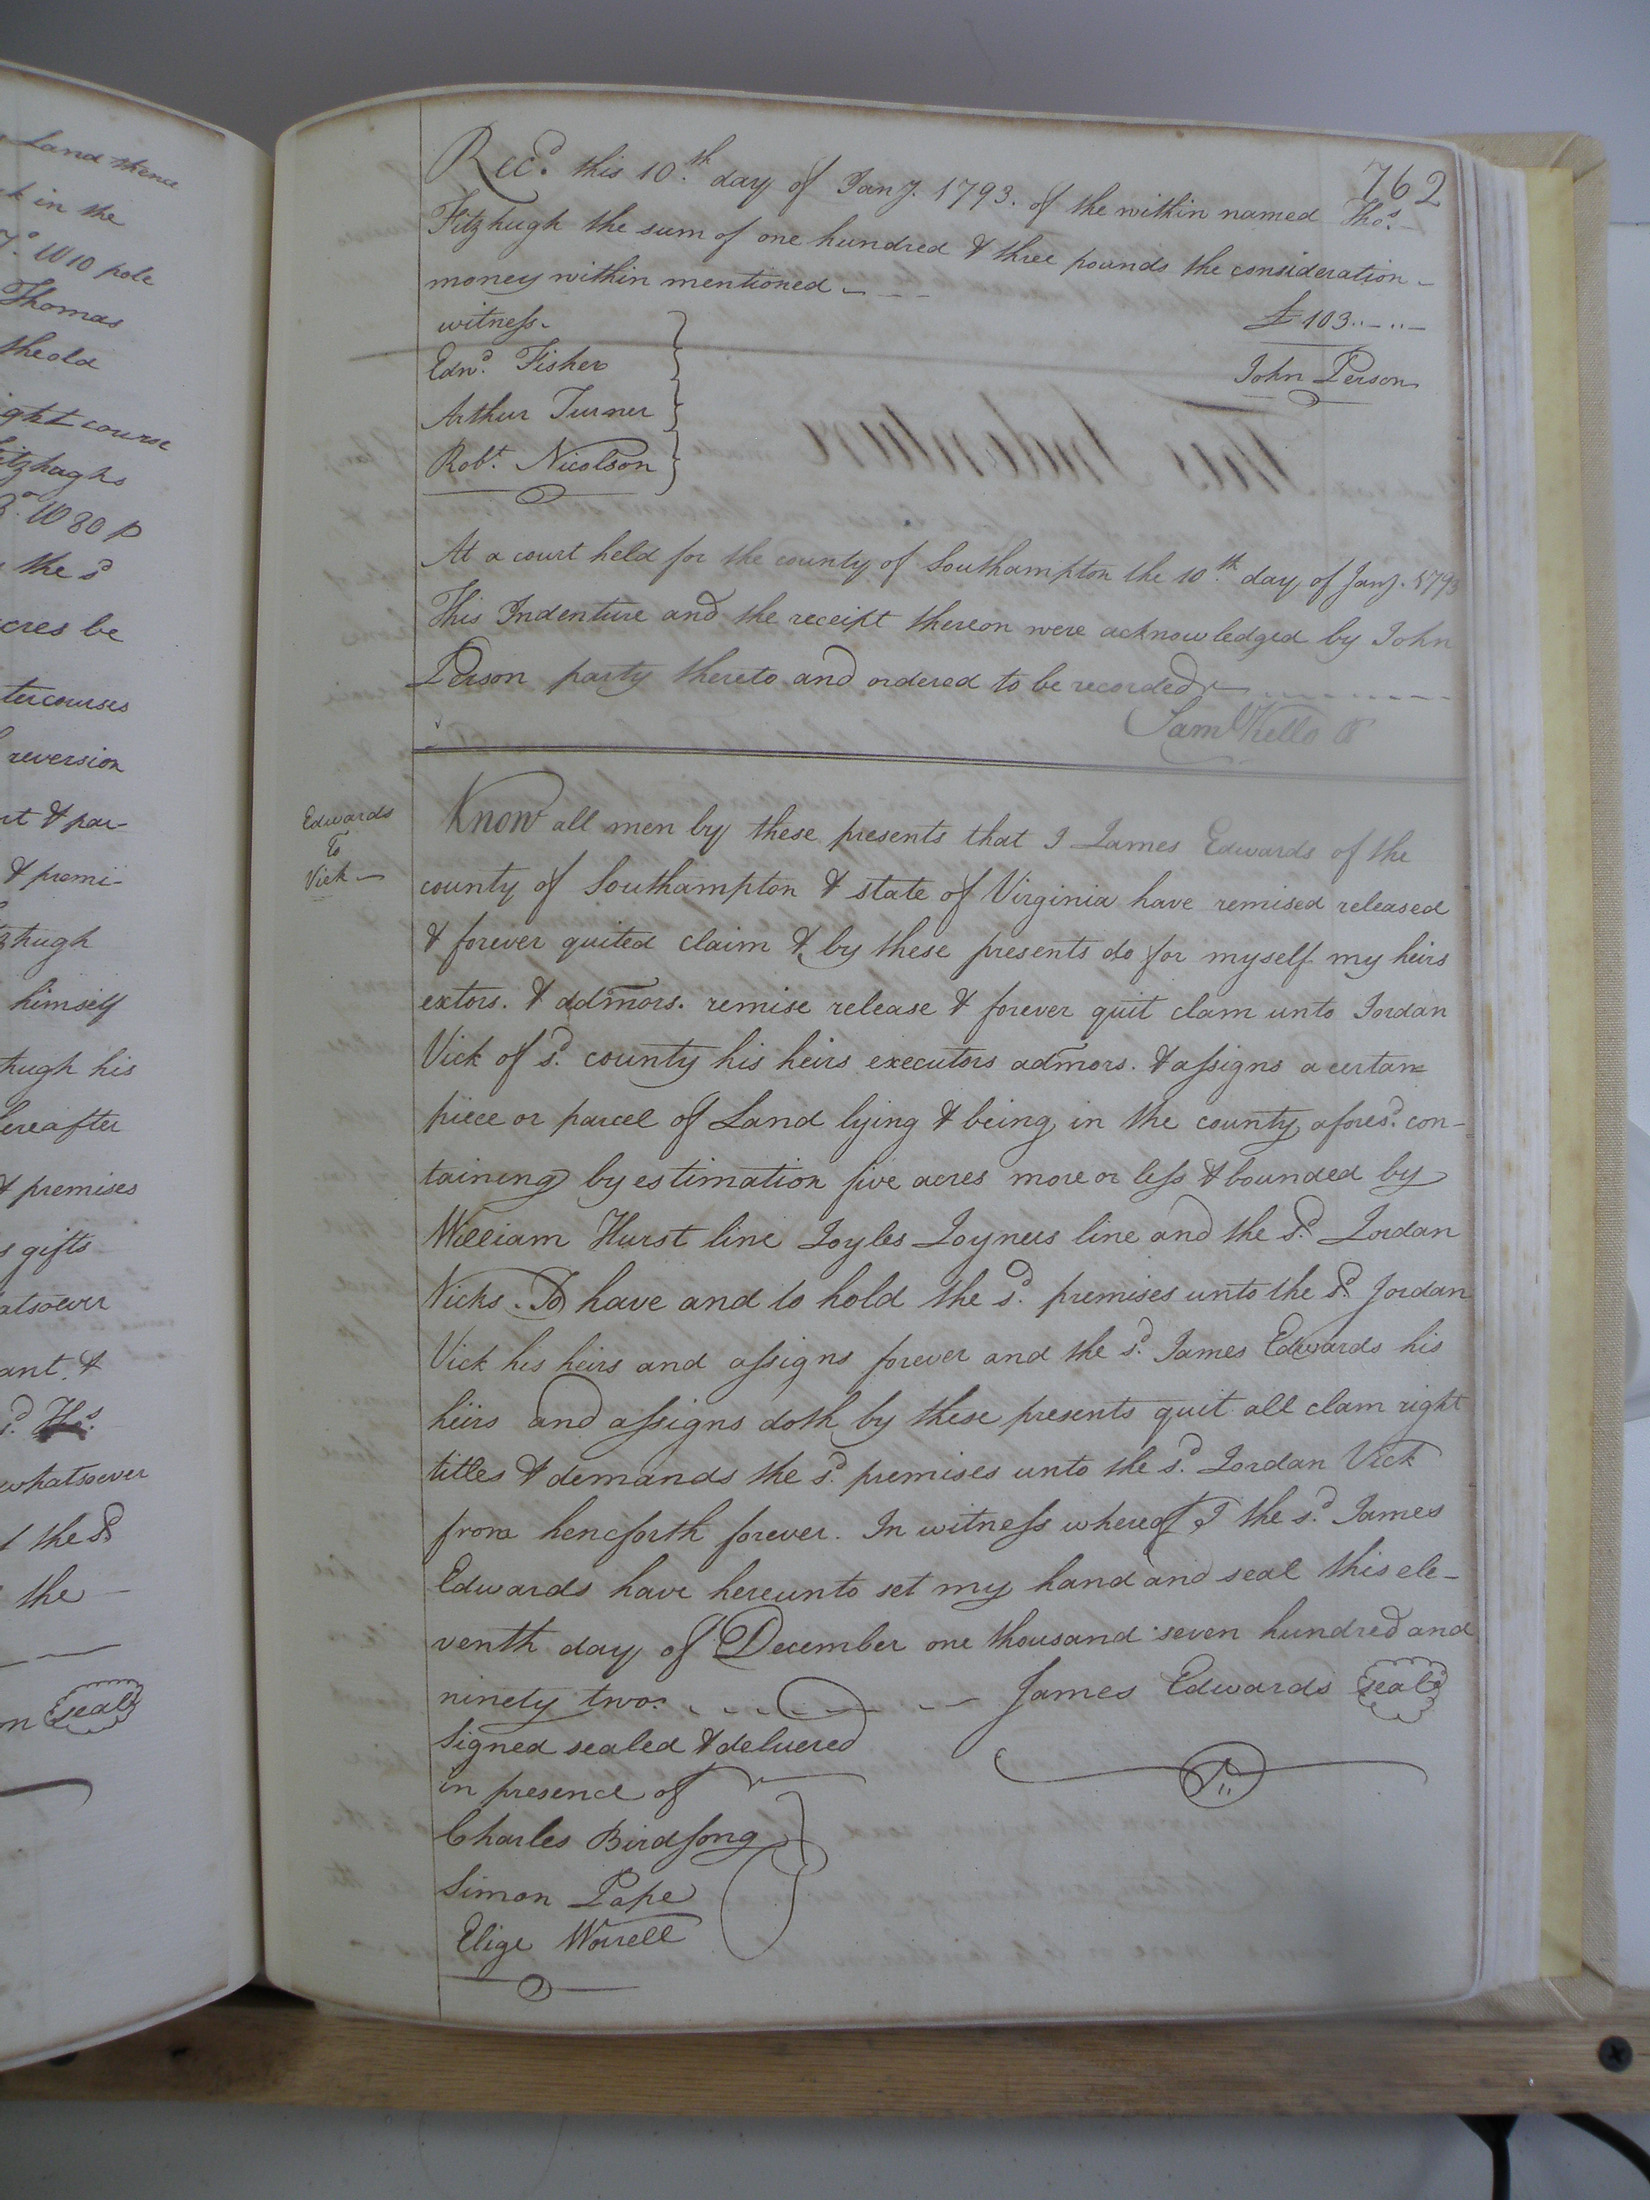 Land thence
k in the
7.° W 10 pole
Thomas
the old
ight course
itzhughs
W 80 p
the sd
cres be
tercourses
reversion
rt & par-
& premi-
zhugh
himself
hugh his
hereafter
& premises
s gifts
atsoever
ant. &
sd.
whatsoever
the Sd
the
on seal
762
Recd. this 10th. day of Jany. 1793. of the within named Thos.
Fitzhugh the sum of one hundred & three pounds the consideration
money within mentioned
£ 103..–..–
witness.
Edwd. Fisher
John Person
Arthur Turner
Robt. Nicolson
At a court held for the county of Southampton the 10th. day of Jany. 1793
This Indenture and the receipt thereon were acknowledged by John
Person party thereto and ordered to be recorded
Saml Kello Cl
Edwards
to
Vick
Know all men by these presents that I James Edwards of the
county of Southampton & state of Virginia have remised released
& forever quited claim & by these presents do for myself my heirs
extors. & admors. remise release & forever quit clam unto Jordan
Vick of sd. county his heirs executors admors. & assigns a certan
piece or parcel of Land lying & being in the county afores.d con-
taining by estimation five acres more or less & bounded by
William Hurst line Joyles Joyners line and the sd. Jordan
Vicks. To have and to hold the sd. premises unto the sd. Jordan
Vick his heirs and assigns forever and the sd. James Edwards his
heirs and assigns doth by these presents quit all clam right
titles & demands the sd. premises unto the sd. Jordan Vick
from hencforth forever. In witness whereof I the sd. James
Edwards have hereunto set my hand and seal this ele-
venth day of December one thousand seven hundred and
ninety two.
James Edwards seal
Signed sealed & deluered
in presence of
Charles Birdsong
Simon Pope
Elige Worrell